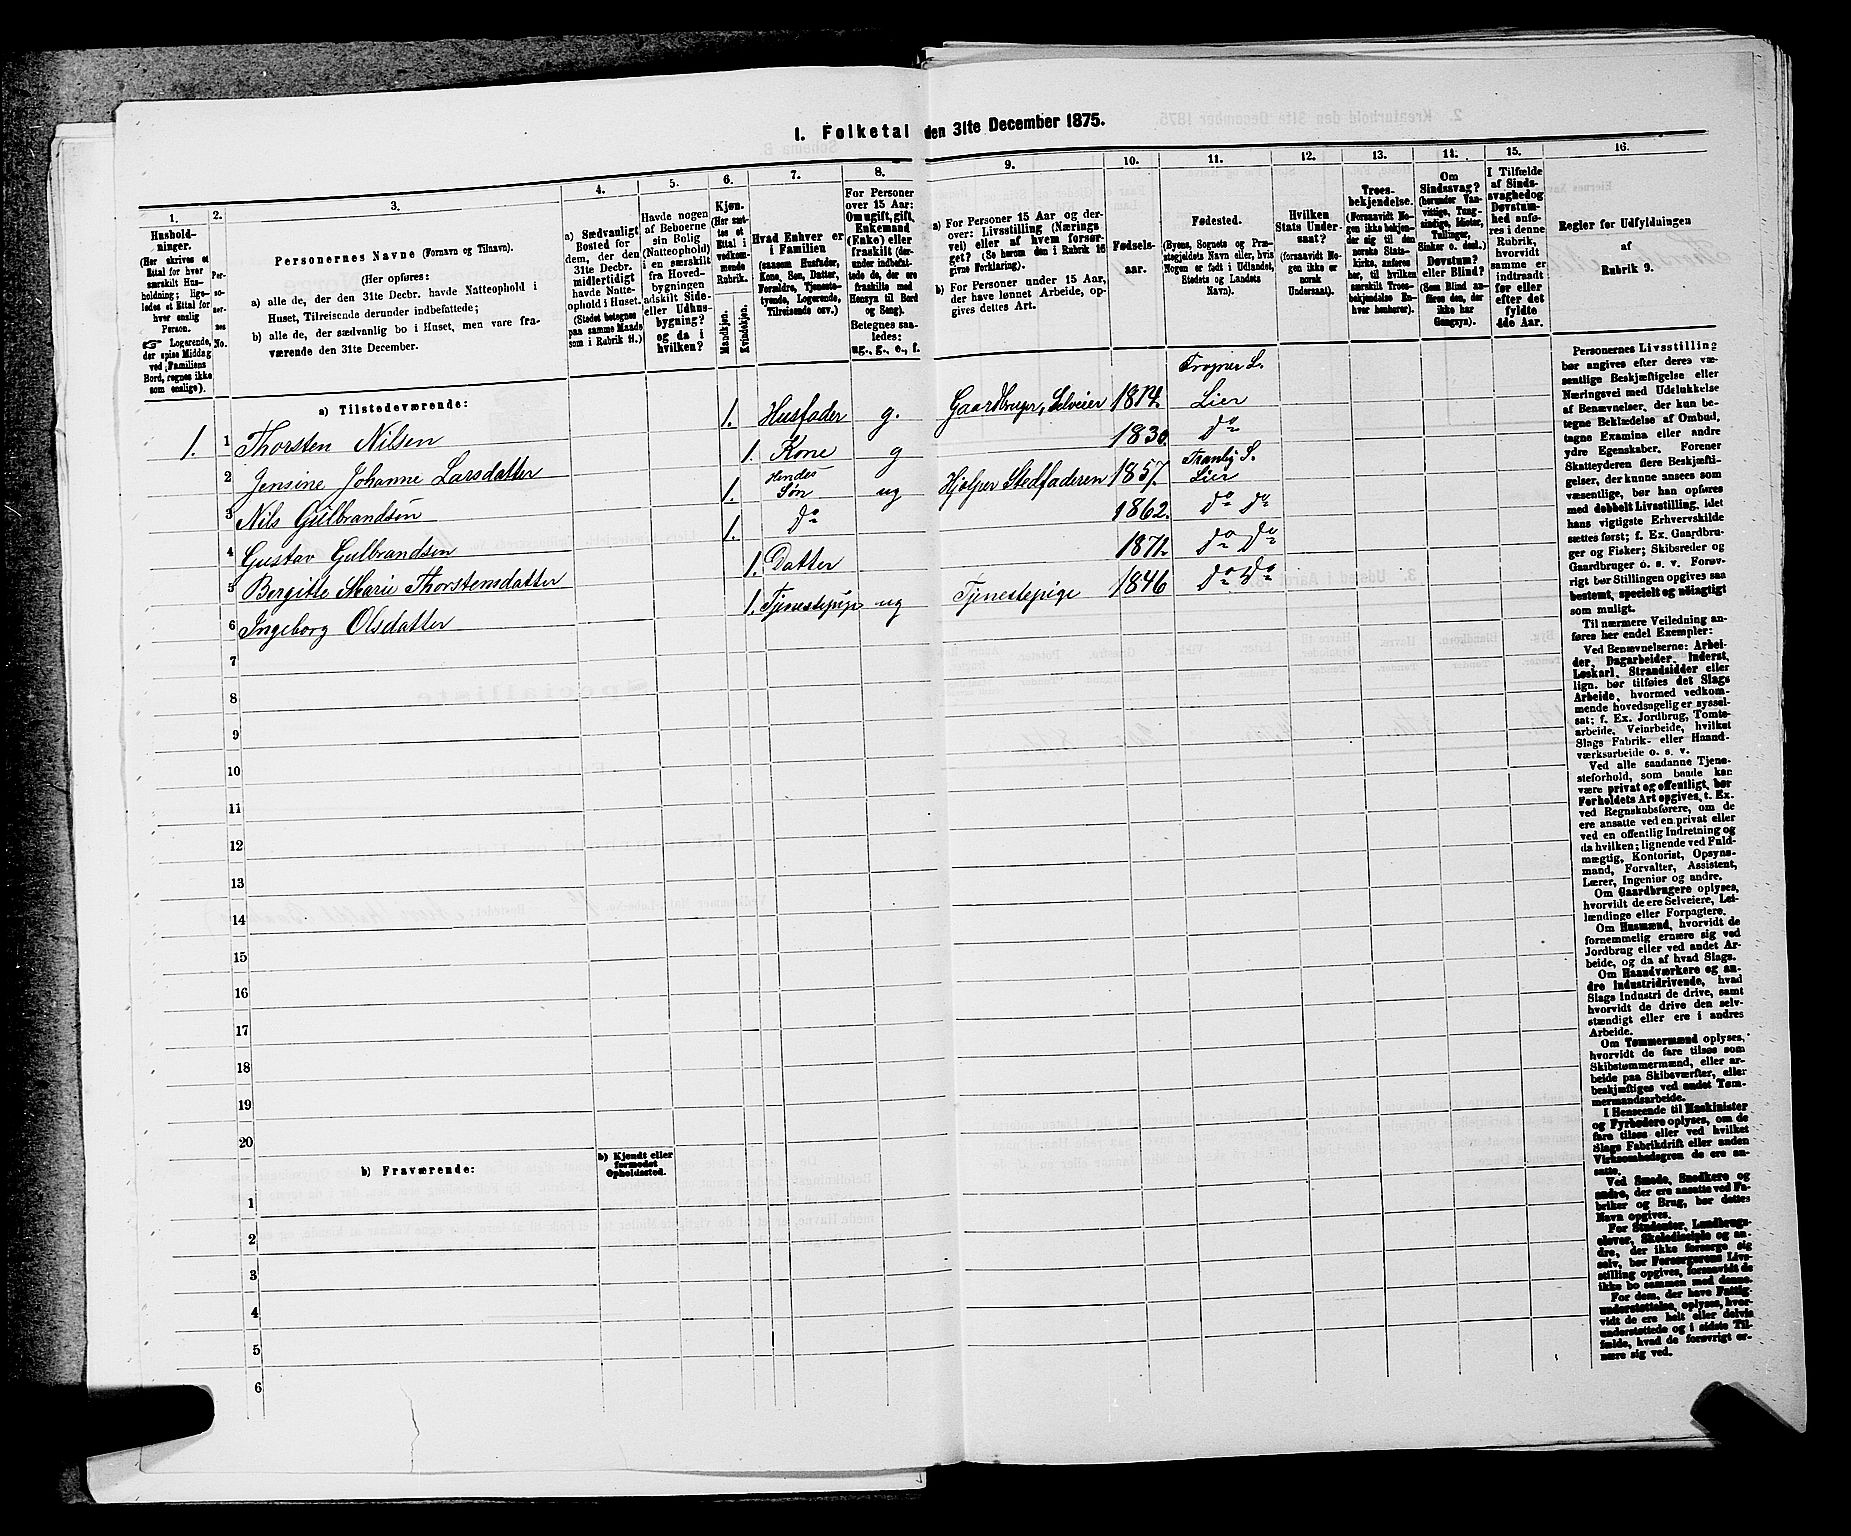 1. Folketal den 31te December 1875.
1.
Husholdninger.
(Her skrives et
Ettal for hver
særskilt Husholdning;
ligeledes et Ettal for
hver enslig
Person.
☞ Logerende,
der spise Middag
ved Familiens
Bord, regnes ikke
som enslige).
2.
Personernes
No.
3.
Personernes Navne (Fornavn og Tilnavn).
(Her opføres:
a) alle de, der den 31te Decbr. havde Natteophold i
Huset, Tilreisende derunder indbefattede;
b) alle de, der sædvanlig bo i Huset, men vare fraværende
den 31te December.
4.
a) Sædvanligt
Bosted for
dem, der den
31te Decbr.
midlertidigt
havde Natteophold
i Huset.
(Stedet betegnes
paa samme Maade
som i Rubrik 11.)
5.
Havde nogen
af Beboerne
sin Bolig
(Natteophold)
i en særskilt
fra Hovedbygningen
adskilt Side-
eller Udhusbygning?
og da i
hvilken?
6.
Kjøn.
(Her sættes
et
Ettal i
vedkommende
Rubrik.
Mandkjøn.
Kvindekjøn.
7.
Hvad Enhver er
i Familien
(saasom Husfader,
Kone, Søn, Datter,
Forældre, Tjenestetyende,
Logerende,
Tilreisende osv.)
8.
For Personer
over 15 Aar:
Om ugift, gift,
Enkemand
(Enke) eller
fraskilt (derunder
indbefattede
de, der ere
fraskilte med
Hensyn til Bord
og Seng).
Betegnes saaledes:
ug., g., e., f.
9.
a) For Personer 15 Aar og derover:
Livsstilling (Næringsvei)
eller af hvem forsørget
(Se herom den i Rubrik 16
givne Forklaring).
b) For Personer under 15 Aar,
der have lønnet Arbeide, opgives
dettes Art.
10.
Fødselsaar.
11.
Fødested.
(Byens, Sognets og Præstegjeldets
Navn eller, hvis
Nogen er født i Udlandet,
Stedets og Landets
Navn).
12.
Hvilken
Stats Undersaat?
(forsaavidt Nogen
ikke er
norsk
Undersaat).
13.
Troesbekjendelse.
(Forsaavidt Nogen
ikke bekjender
sig til den
norske Statskirke,
anføres
her, til hvilken
særskilt Troesbekjendelse
Enhver
henhører).
14.
Om
Sindssvag?
(herunder Vanvittige,
Tungsindige,
Idioter,
Tullinger,
Sinker o. desl.)
Døvstum?
eller Blind?
(Som Blind anføres
den, der
ikke har
Gangsyn).
15.
I Tilfælde
af Sindssvaghed
og
Døvstumhed
anføres
i denne
Rubrik,
hvorvidt
samme er
indtraadt
før eller
efter det
fyldte
4de Aar.
16.
Regler for Udfyldningen
af
Rubrik 9.
a) Tilstedeværende:
1. 1 Thorsten Nilsen 1. Husfader g. Gaardbruger, Selveier 1814. Frogner S. Lier
2 Jensine Johanne Larsdatter 1. Kone g 1830. do
3 Nils Gulbrandsen 1. Hendes Søn ug Hjelper Stedfaderen 1857. Tranby S. Lier
4 Gustav Gulbrandsen 1. do 1862. do do
5 Bergitte Marie Thorstensdatter 1. Datter 1871. do do
6 Ingeborg Olsdatter 1. Tjenestepige ug Tjenestepige 1846 do do
7
8
9
10
11
12
13
14
15
16
17
18
19
20
b) Fraværende:
b) Kjendt eller
formodet
Opholdssted.
1
2
3
4
5
6
Personernes Livsstilling
bør angives efter deres væsentlige
Beskjæftigelse eller
Næringsvei med Udelukkelse
af Benævnelser, der kun betegne
Beklædelse af Ombud,
tagne Examina eller andre
ydre Egenskaber. Forener
Skatteyderen flere Beskjæftigelser,
der kunne ansees som
væsentlige, bør han opføres
med dobbelt Livsstilling, idet
hans vigtigste Erhvervskilde
sættes først; f. Ex. Gaardbruger
og Fisker; Skibsreder og
Gaardbruger o. s. v. Forøvrigt
bør Stillingen opgives saa
bestemt, specielt og nøiagtigt
som muligt.
Til nærmere Veiledning anføres
her endel Exempler:
Ved Benævnelserne: Arbeider,
Dagarbeider, Inderst,
Løskarl, Strandsidder eller
lign. bør tilføies det Slags
Arbeide, hvormed vedkommende
hovedsagelig er sysselsat;
f. Ex. Jordbrug, Tomtearbeide,
Veiarbeide, hvilket
Slags Fabrik- eller Haandværksarbeide
o. s. v.
Ved alle saadanne Tjenesteforhold,
som baade kan
være privat og offentligt, bør
Forholdets Art opgives, t. Ex.
ved Regnskabsførere, om de
ere ansatte ved en privat eller
ved en offentlig Indretning og
da hvilken; lignende ved Fuldmægtig,
Kontorist, Opsynsmand,
Forvalter, Assistent,
Lærer, Ingeniør og andre.
Om Gaardbrugere oplyses,
hvorvidt de ere Selveiere, Leilændinge
eller Forpagtere.
Om Husmænd, hvorvidt de
fornemmelig ernære sig ved
Jordbrug eller ved andet Arbeide,
og da af hvad Slags.
Om Haandværkere og andre
Industridrivende, hvad
Slags Industri de drive, samt
hvorvidt de drive den selvstændigt
eller ere i andres
Arbeide.
Om Tømmermænd oplyses,
hvorvidt de fare tilsøs som
Skibstømmermænd, eller arbeide
paa Skibsværfter, eller
beskjæftiges ved andet Tømmermandsarbeide.
I Henseende til Maskinister
og Fyrbødere oplyses, om de
fare tilsøs eller ved hvilket
Slags Fabrikdrift eller anden
Virksomhedsgren de ere ansatte.
Ved Smede, Snedkere og
andre, der ere ansatte ved Fabriker
og Brug, bør dettes
Navn opgives.
For Studenter, Landbrugselever,
Skoledisciple og andre,
der ikke forsørge sig
selv, bør Forsørgerens Livsstilling
opgives, forsaavidt de
ikke bo sammen med denne.
For dem, der have Fattigunderstøttelse,
oplyses, hvorvidt
de ere helt eller delvis
understøttede og i sidste Tilfælde,
hvad de forøvrigt ernære
sig ved.